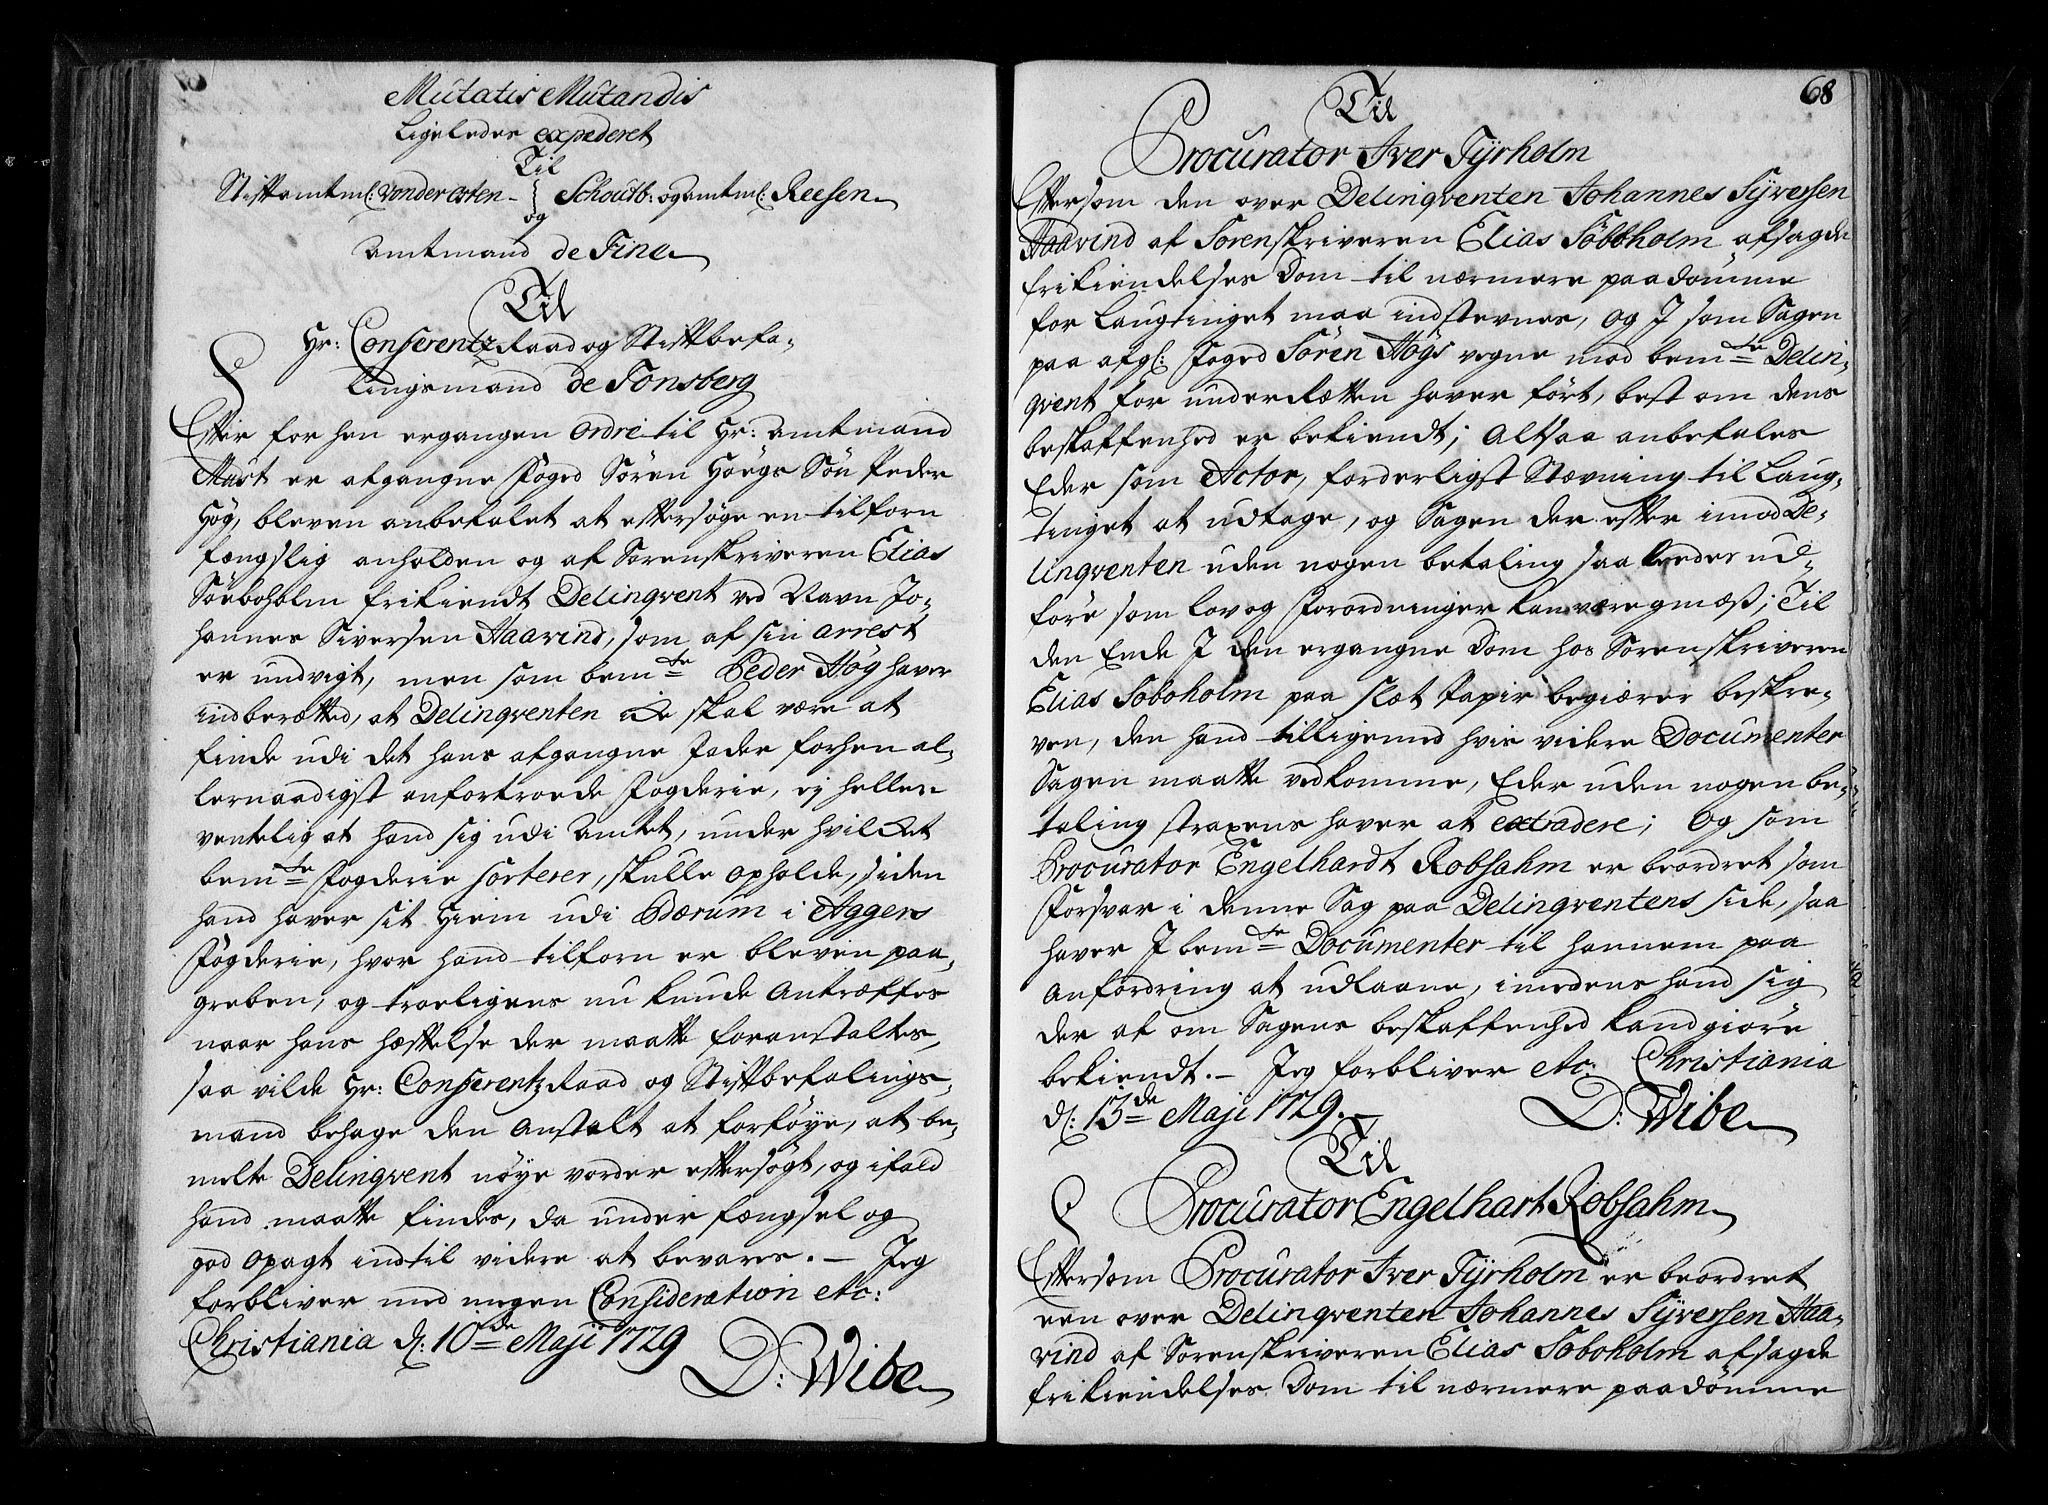 Mutatis Mutandis
Ligeledes expederet
Til
Stiftamtm: von der Osten – og Schoutb: og Amtm: Reesen
Amtmand de Fine
Til
Hr: ConferentzRaad og Stiftbefa-
lingsmand de Tonsberg
Efter forhen ergangen Ordre til Hr: Amtmand
Must er afgangne Foged Sören Höegs Sön Peder
Hög, bleven anbefalet at eftersöge en tilforn
fængslig anholden og af Sorenskriveren Elias
Söeboholm frikiendt Delinqvent ved Navn Jo-
hannes Siversen Haavind, som af sin arrest
er undvigt, men som bemte Peder Hög haver
indberætted, at Delinqventen icke skal være at
finde udi det hans afgangne Fader forhen al-
lernaadigst anfortroede Fogderie, ej heller
ventelig at hand sig udi Amtet, under hvilcket
bemte Fogderie sorterer, skulle opholde, siden
hand haver sit Hiem udi Bærum i Aggers
Fogderie, hvor hand tilforn er bleven paa-
greben, og troeligens nu kunde Antræffes
naar hans hæftelse der maatte foranstaltes,
saa vilde Hr: ConferentzRaad og Stiftbefalings-
mand behage den Anstalt at forföye, at be-
melte Delinqvent nöye vorder eftersögt, og ifald
hand maatte findes, da under fængsel og
god opagt indtil videre at bevares. – Jeg
forbliver med megen Consideration etc:
Christiania d: 10de Maji 1729
D: Wibe
68
Til
Procurator Iver Tyrholm
Eftersom den over Delinqventen Johannes Syversen
Haavind af Sorenskriveren Elias Söbboholm afsagde
frikiendelses Dom til nærmere paadömme
for Laugtinget maa indstevnes, og I som Sagen
paa afg: Foged Sören Högs vegne mod bemte Delin-
qvent for underRætten haver fört, best om dens
beskaffenhed er bekiendt; Altsaa anbefales
Eder som Actor, forderligst Stævning til Laug-
tinget at udtage, og Sagen der efter imod De-
linqventen uden nogen betaling saaledes ud-
före som lov og Forordninger kan være gmæs; Til
den Ende I den ergangne Dom hos Sorenskriveren
Elias Soboholm paa slæt Papir begiærer beskre-
ven, den hand tilligemed hvis videre Documenter
Sagen maatte vedkomme, Eder uden nogen be-
taling straxens haver at extradere; Og som
Procurator Engelhardt Robsahm er beordret som
Forsvar i denne Sag paa Delinqventens side, saa
haver I bemte Documenter til hannem paa
Anfordring at udlaane, imedens hand sig
der af om Sagens beskaffenhed kand giöre
bekiendt. – Jeg forbliver etc: Christiania
d: 13de Maji 1729. –
D: Wibe
Til
Procurator Engelhart Robsahm
Eftersom Procurator Iver Tyrholm er beordret
een over Delinqventen Johannes Syversen Haa-
vind af Sorenskriveren Elias Soboholm afsagde
frikiendelses Dom til nærmere paadömme